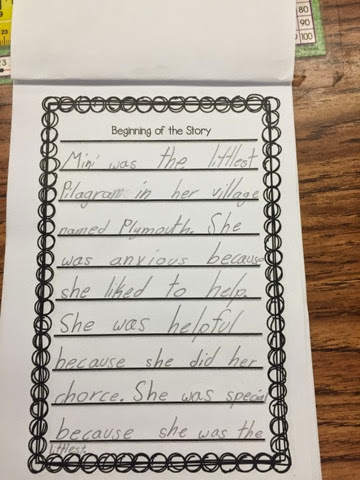 80
90
100
Beginning of the Story
Mini was the littlest
Pilagram in her village
named Plymouth. She
was anxious because
she liked to help.
She was helpful
because she did her
chorce. She was special
because she was the
littlest.